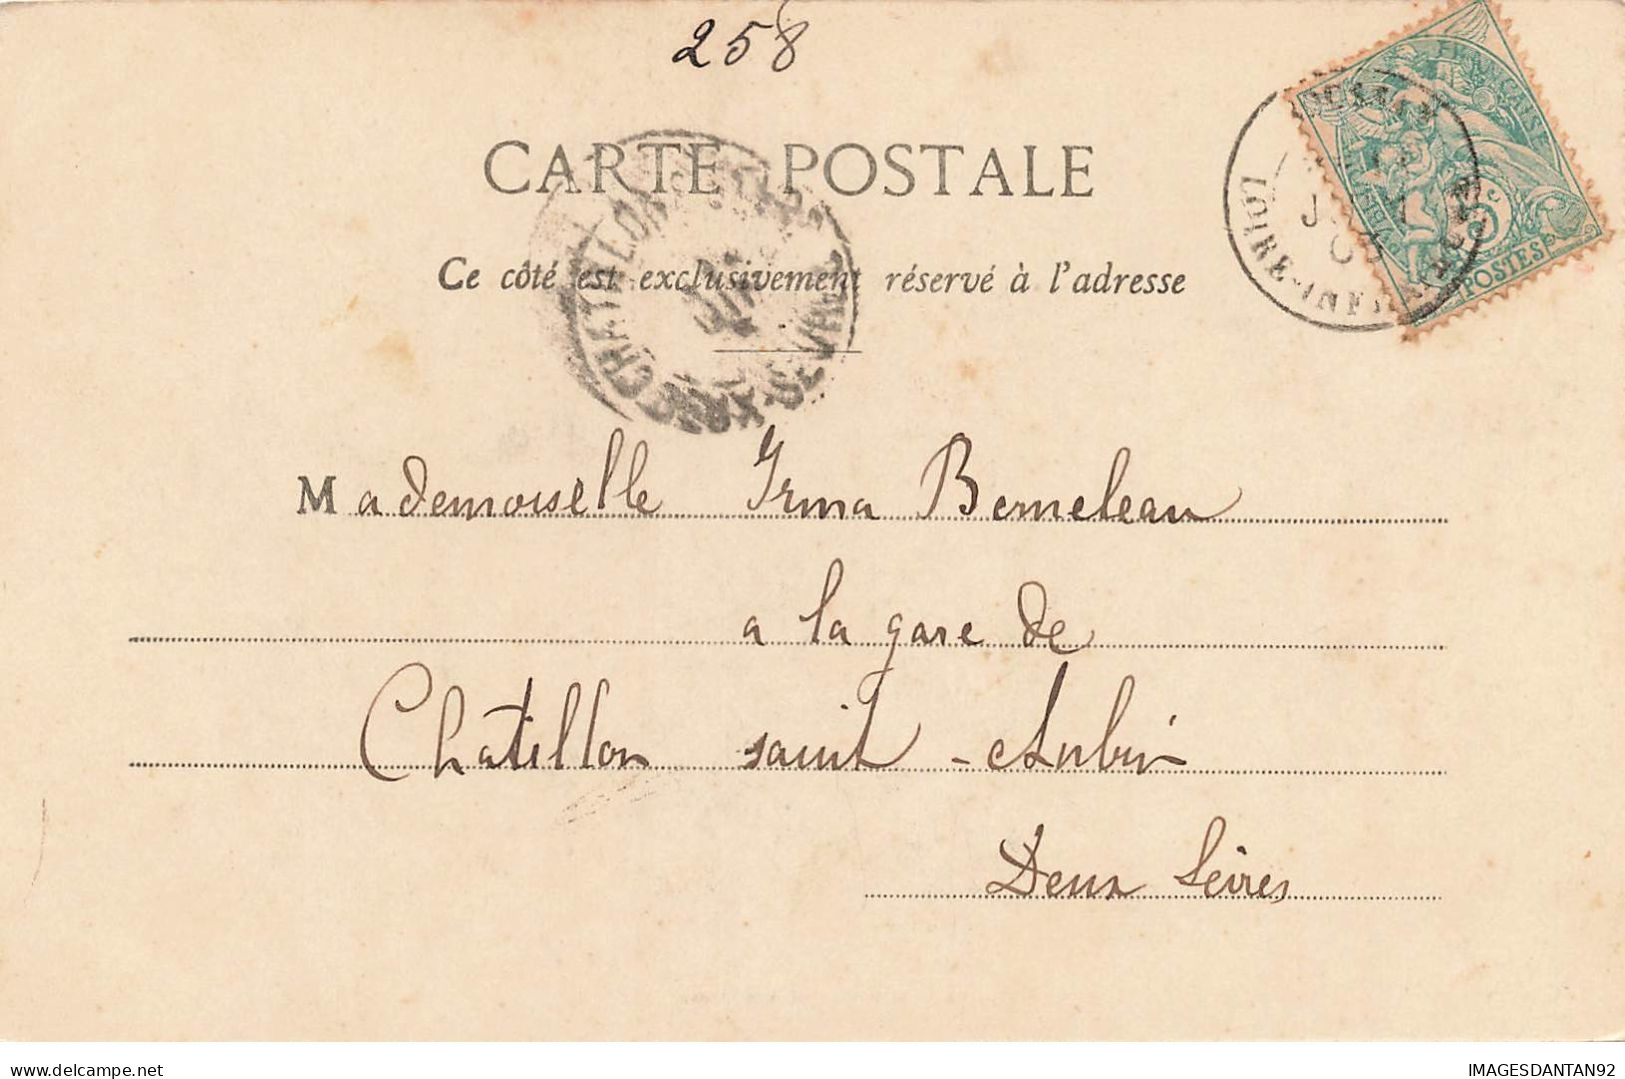 258
CARTE POSTALE
Ce côté est exclusivement réservé à l'adresse
CHATILLON
DEUX-SÈVRES
LOIRE-INFRE
POSTES
5c
Mademoiselle Irma Bemeleau
a la gare de
Chatillon saint-Aubin
Deux Sèvres
delcampe.net
IMAGESDANTAN92